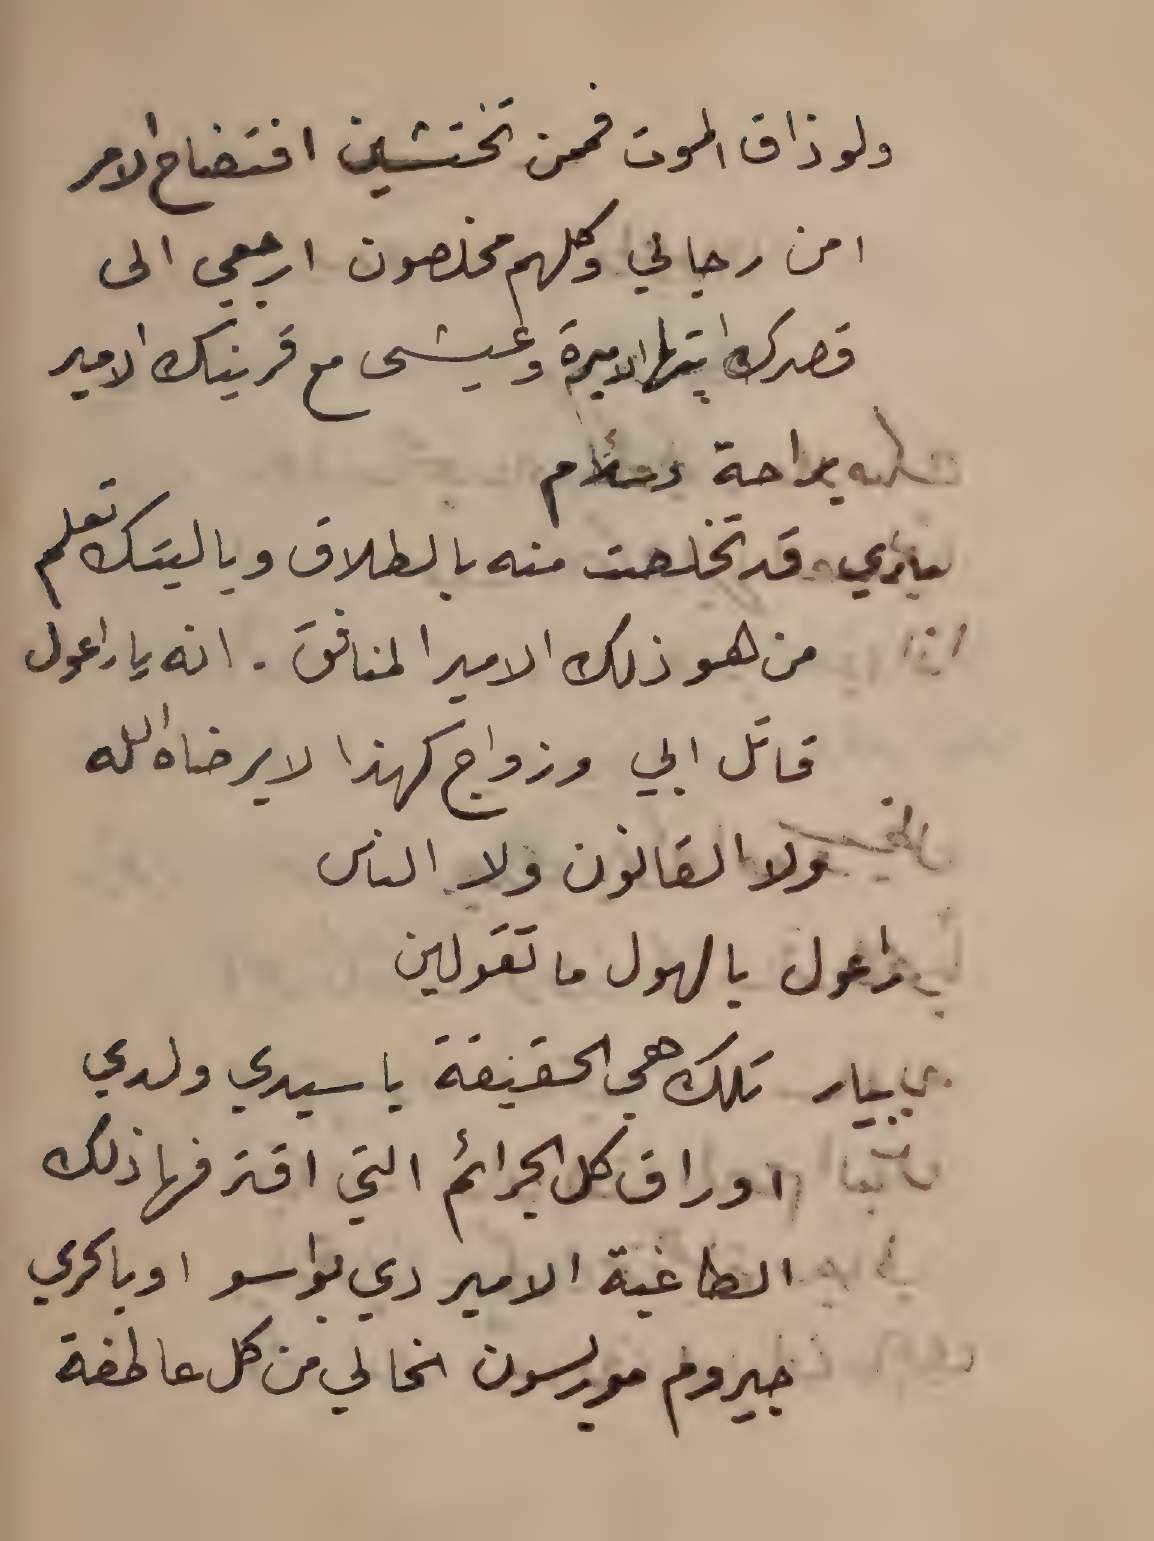 ولو ذاق الموت فممن تختشين افتضاح الامر
امن رجالي وكلهم مخلصون ارجعي الى
قصرك ايتها الاميرة وعيشى مع قرينك الامير
براحة وسلام
ماري قد تخلصت منه بالطلاق وياليتك تعلم
من هو ذلك الامير المنافق . انه يا راعول
قاتل ابي وزواج كهذا لا يرضاه الله
ولا القانون ولا الناس
راعول يالهول ما تقولين
بيار تلك هي الحقيقة يا سيدي ولدي
اوراق كل الجرائم التي اقترفها ذلك
الطاغية الامير دي بواسو او بالحري
جيروم موريسون الخالي من كل عاطفة